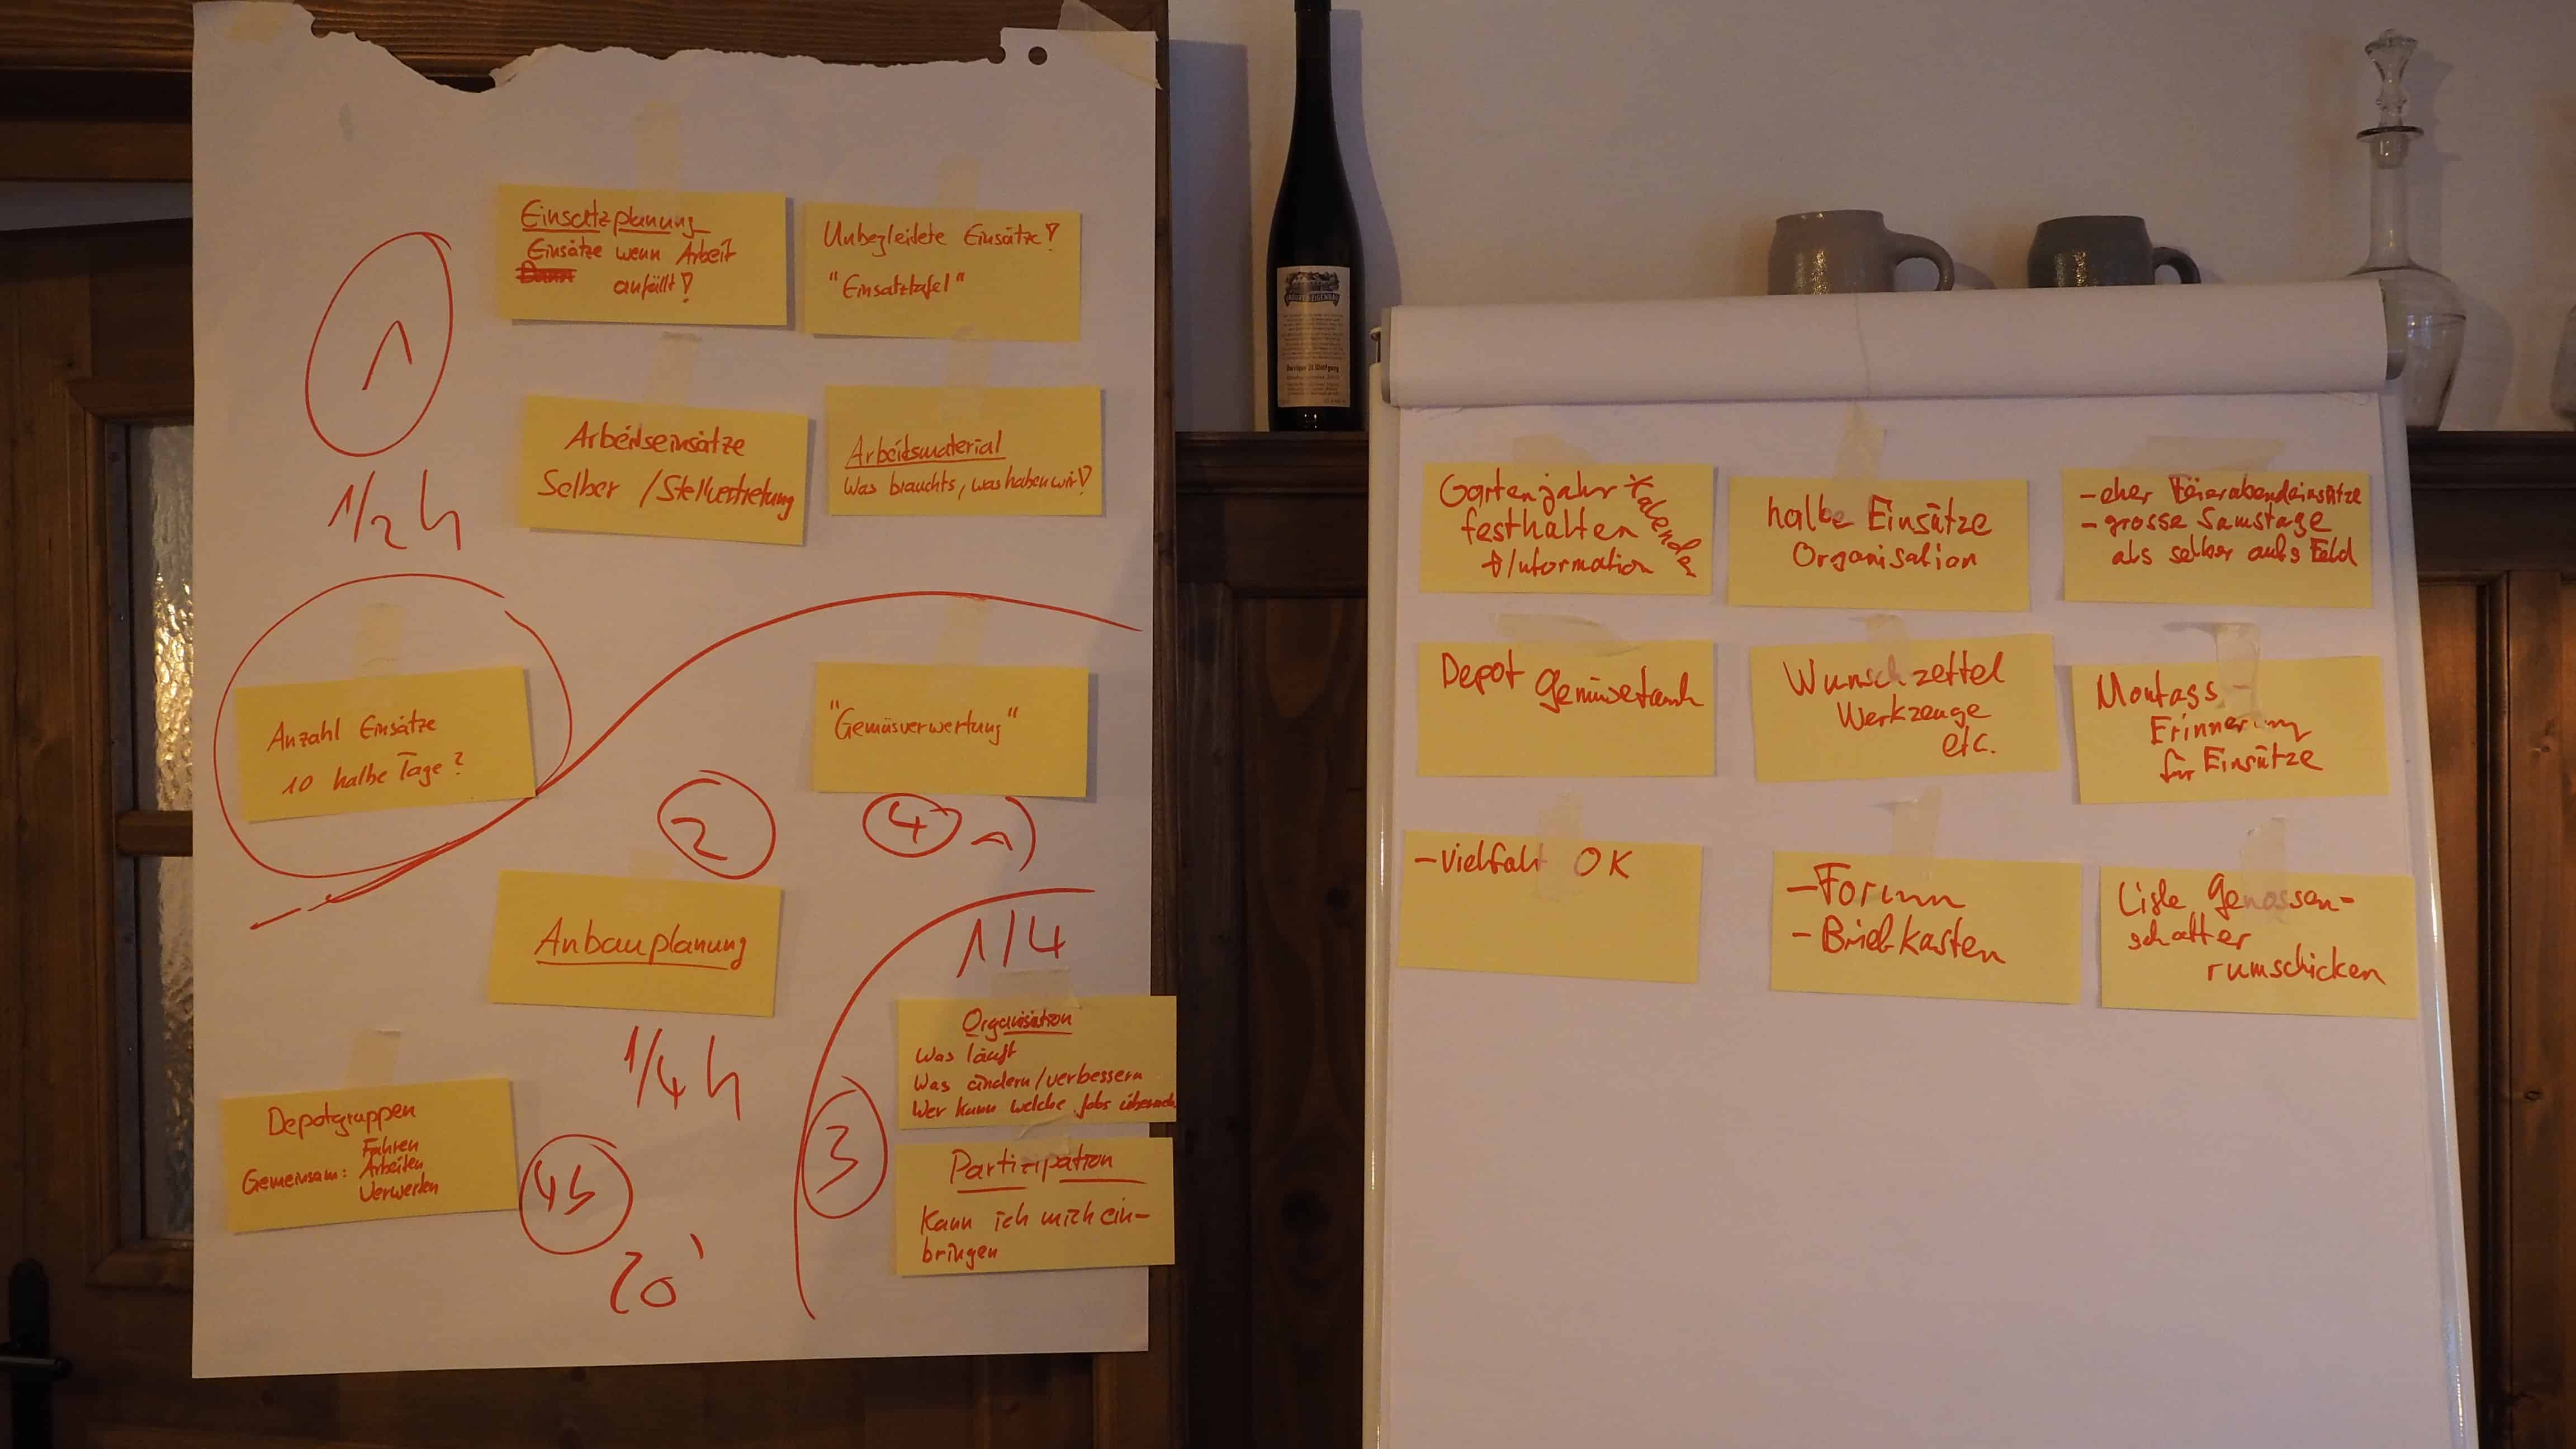 Einsatzplanung
Einsätze wenn Arbeit
anfällt!
Unbegleitete Einsätze!
"Einsatztafel"
1
1/2 h
Arbeitseinsätze
Selber / Stellvertretung
Arbeitsmaterial
Was brauchts, was haben wir!
Anzahl Einsätze
10 halbe Tage?
"Gemüsverwertung"
2
4 a)
Anbauplanung
1/4 h
1/4
Organisation
Was läuft
Was ändern/verbessern
Wer kann welche Jobs
3
Partizipation
Kann ich mich ein-
bringen
Depotgruppen
Fahren
Gemeinsam: Arbeiten
Verwerten
4b
20'
Gartenjahr Kalender
festhalten
Information
halbe Einsätze
Organisation
- eher Feierabendeinsätze
- grosse Samstage
als selber aufs Feld
Depot Gemüsetausch
Wunschzettel
Werkzeuge
etc.
Montags-
Erinnerung
für Einsätze
- Vielfalt OK
- Forum
- Briefkasten
Liste Genossen-
schafter
rumschicken